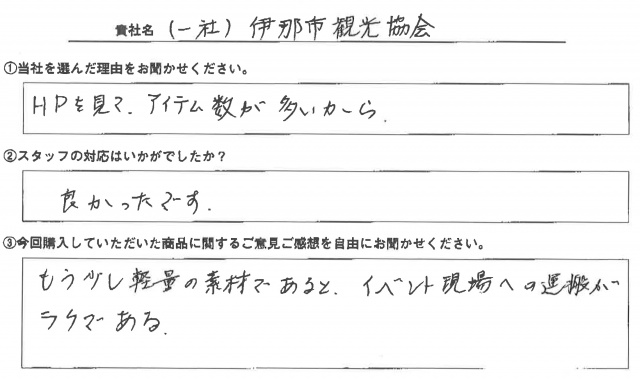 貴社名 (一社)伊那市観光協会
①当社を選んだ理由をお聞かせください。
HPを見て、アイテム数が多いから.
②スタッフの対応はいかがでしたか？
良かったです.
③今回購入していただいた商品に関するご意見ご感想を自由にお聞かせください。
もう少し軽量の素材であると、イベント現場への運搬が
ラクである.